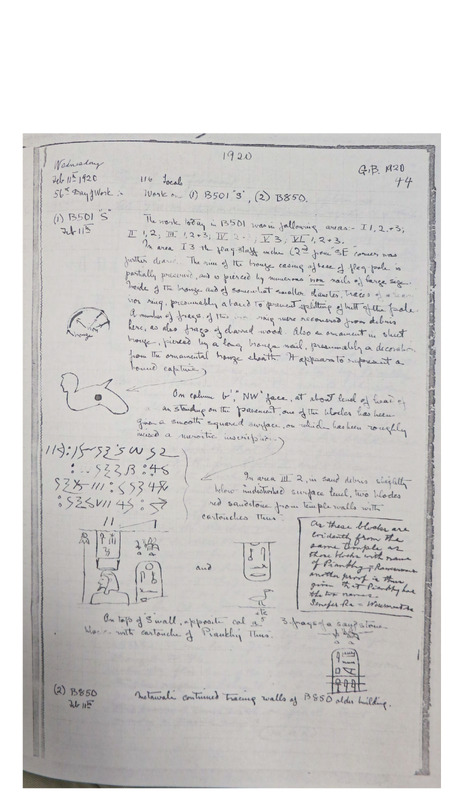 1920
G.B. M20
44
Wednesday
Feb 11th 1920
56th Day of Work
116 Locals
Work on (1) B501 'S', (2) B850.
(1) B501 'S'
Feb 11th
The work today in B501 was in following areas - I 1, 2, + 3;
II 1, 2; III 1, 2 + 3; IV 2; V 3; VI 1, 2 + 3.
In area I 3 the flag staff niche (2nd from SE corner was
further cleared. The rim of the bronze casing of base of flag pole is
partially preserved, and is pierced by numerous iron nails of large size.
Inside of the bronze and of somewhat smaller diameter, traces of a
iron ring, presumably a band to prevent splitting of butt of the pole.
A number of frags of this iron ring were recovered from debris
here, as also frags of charred wood. Also an ornament in sheet
bronze, pierced by a long bronze nail, presumably a decoration
from the ornamental bronze sheath. It appears to represent a
bound captive.
On column 6, NW face, at about level of head of
man standing on the pavement, one of the blocks has been
given a smooth squared surface, on which has been roughly
incised a meroitic inscription.
In area III 2, in sand debris slightly
below undisturbed surface level, two blocks
red sandstone from temple walls with
cartouches thus:
and
etc
As these blocks are
evidently from the
same temple as
those blocks with name
of Piankhy
another proof is thus
given that Piankhy had
the two names
Senefer Ra = Usermaatra
On top of S wall, opposite col 3, 3 frags of a sandstone
block with cartouche of Piankhy thus.
(2) B850
Feb 11th
Mutawali continued tracing walls of B850 older building.